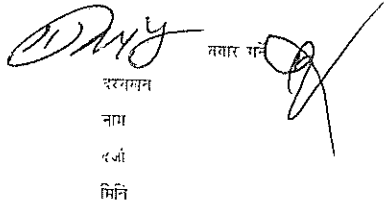 तयार गर्ने
दस्तखत
नाम
दर्जा
मिति